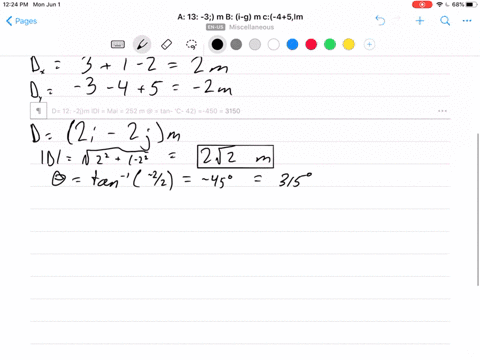 12:24 PM Mon Jun 1
68%
A: 13: -3;) m B: (i-g) m c:(-4+5,Im
Pages
EN-US Miscellaneous
Dx = 3 + 1 - 2 = 2 m
Dy = -3 - 4 + 5 = -2m
¶ D= 12: -2(jm IDI = Mai = 252 m @ = tan- 'C- 42) =-450 = 3150
D = (2i - 2j) m
|D| = √2² + (-2² = 2√2 m
θ = tan⁻¹ (-2/2) = -45° = 315°